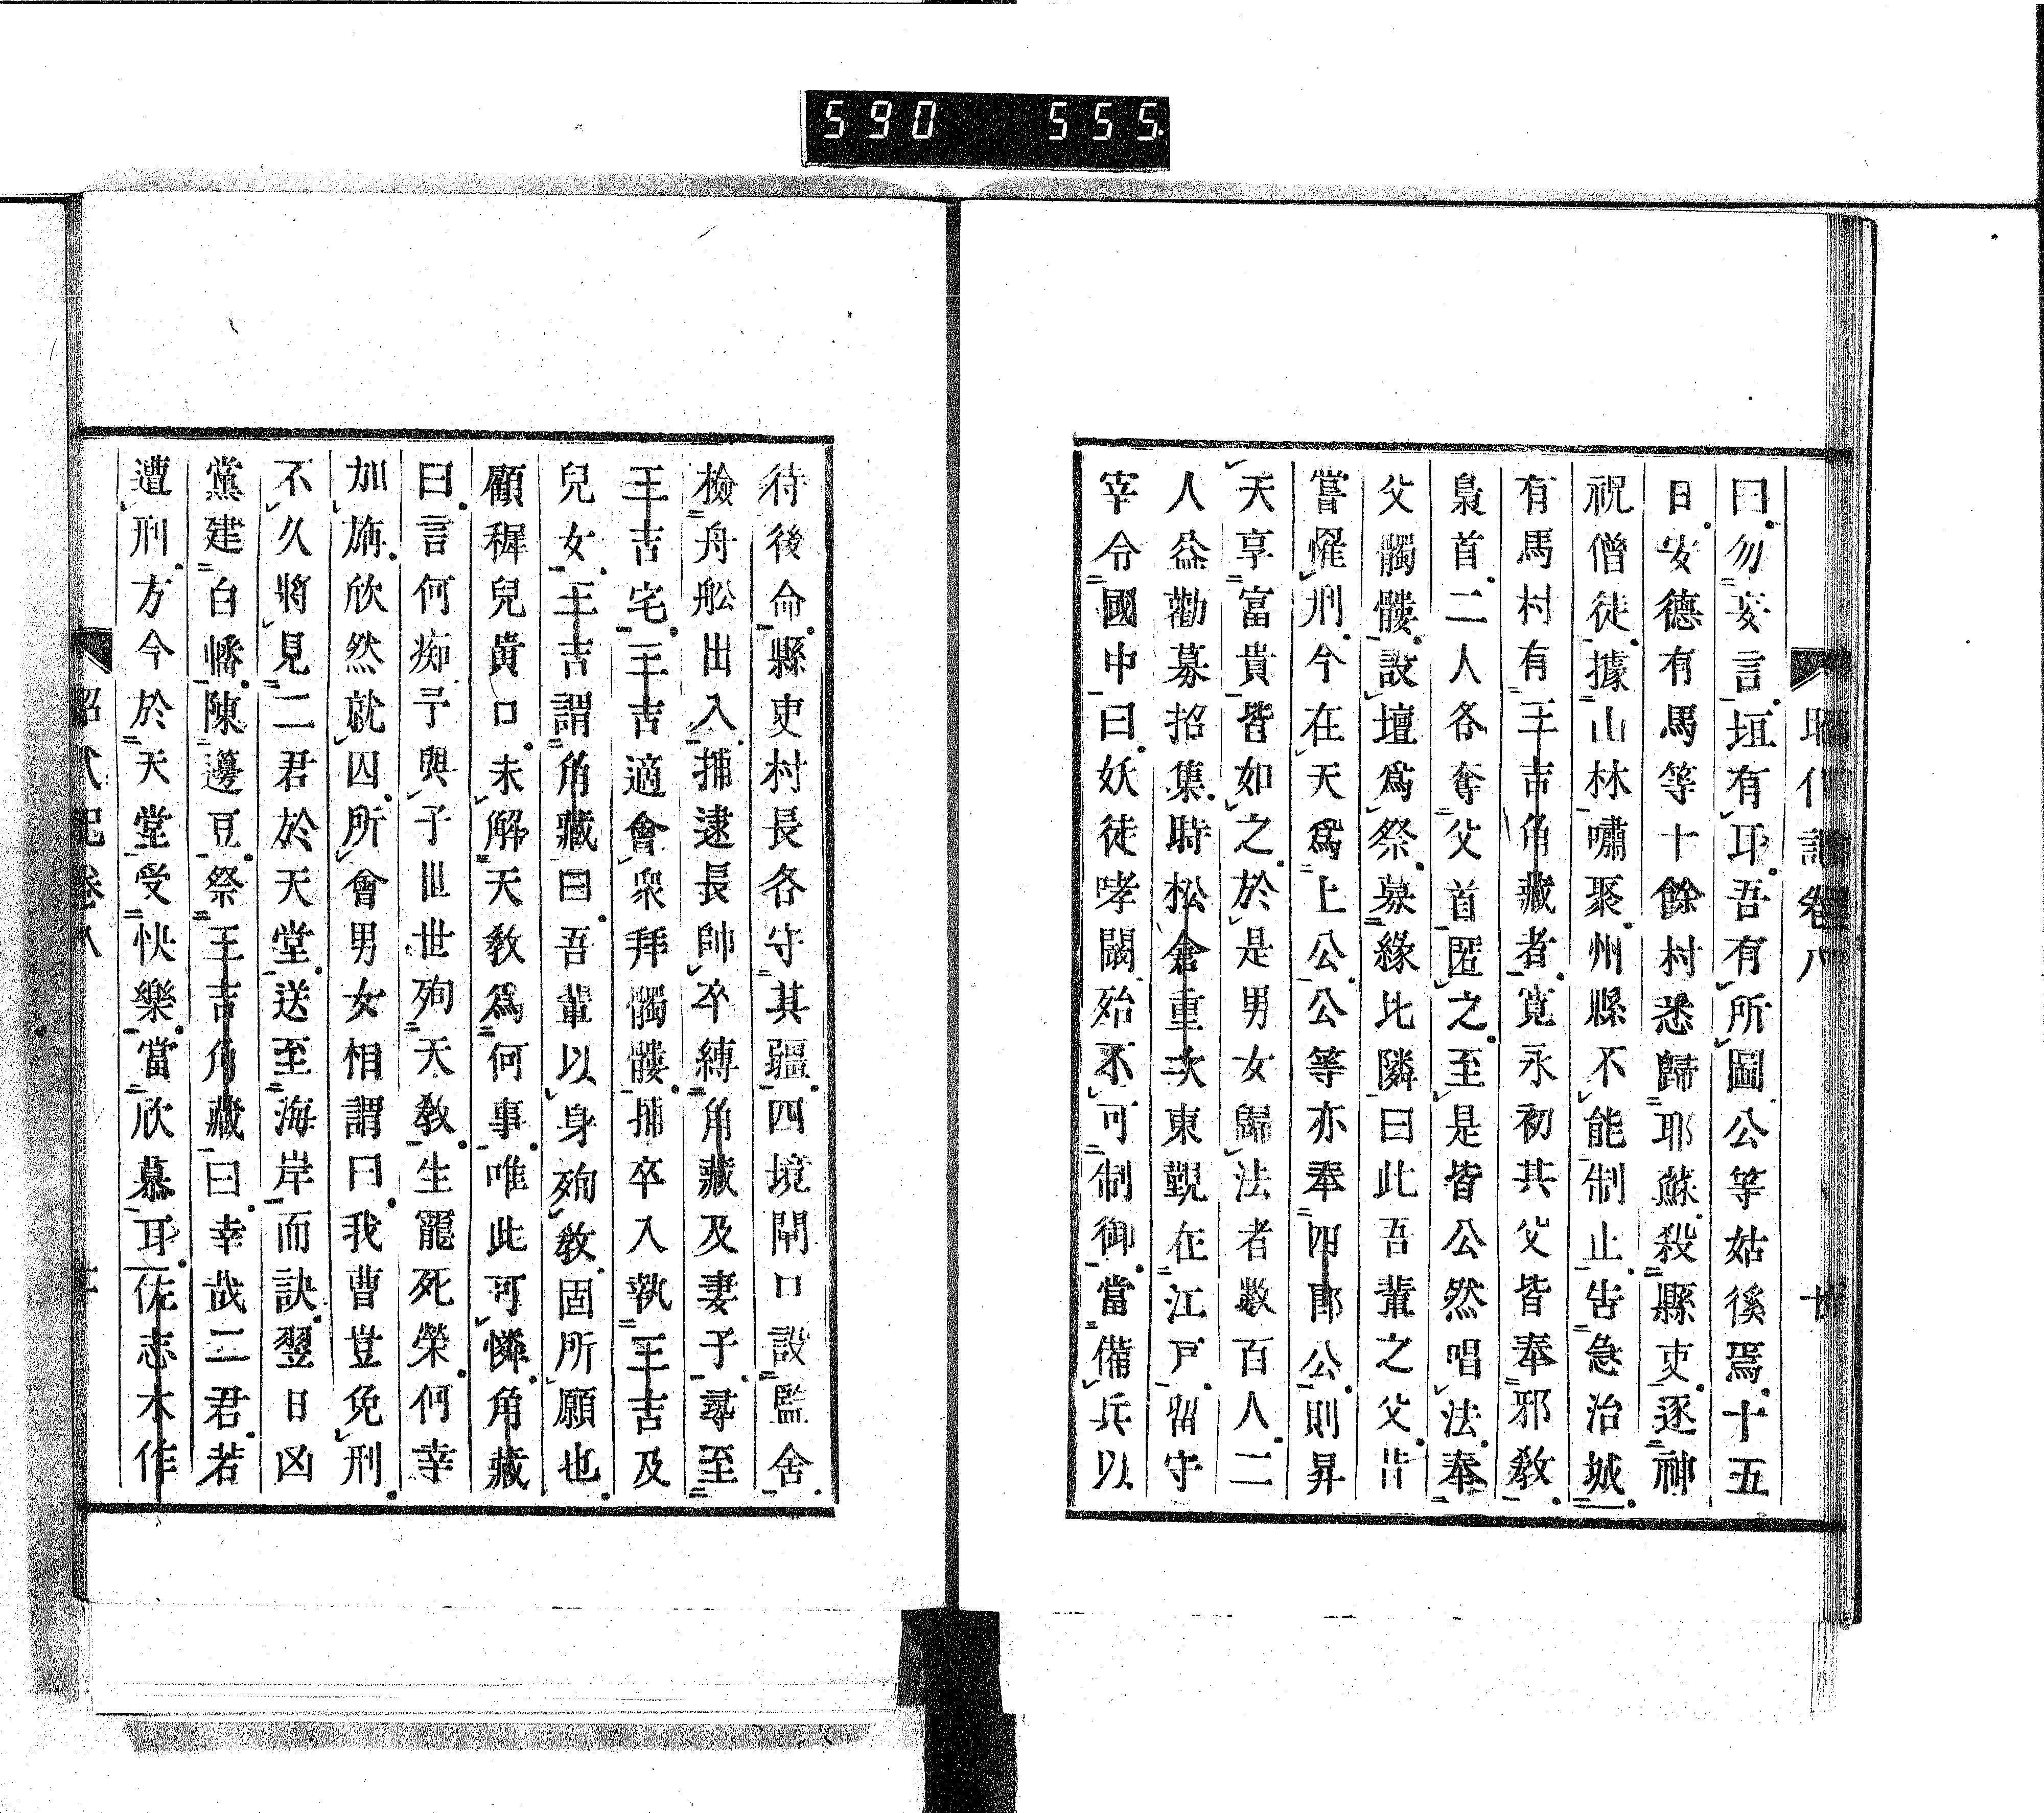 590 555
昭代記卷八
曰勿妄言垣有耳吾有所圖公等姑後焉十五
日安德有馬等十餘村悉歸耶蘇殺縣吏逐神
祝僧徒據山林嘯聚州縣不能制止告急治城
有馬村有王吉角藏者寬永初其父皆奉邪教
梟首二人各奪父首匿之至是皆公然唱法奉
父髑髏設壇爲祭募緣比隣曰此吾輩之父昔
嘗罹刑今在天爲上公公等亦奉四郎公則昇
天享富貴皆如之於是男女歸法者數百人二
人益勸募招集時松倉重次東覲在江戸留守
宰令國中曰妖徒哮闞殆不可制御當備兵以
待後命縣吏村長各守其疆四境閘口設監舍
檢舟舩出入捕逮長帥卒縛角藏及妻子尋至
王吉宅王吉適會衆拜髑髏捕卒入執王吉及
兒女王吉謂角藏曰吾輩以身殉教固所願也
顧穉兒黄口未解天教爲何事唯此可憐角藏
曰言何痴予與子世世殉天教生寵死榮何幸
加旃欣然就囚所會男女相謂曰我曹豈免刑
不久將見二君於天堂送至海岸而訣翌日凶
黨建白幡陳籩豆祭王吉角藏曰幸哉二君若
遭刑方今於天堂受快樂當欣慕耳佐志木作
昭代記卷八